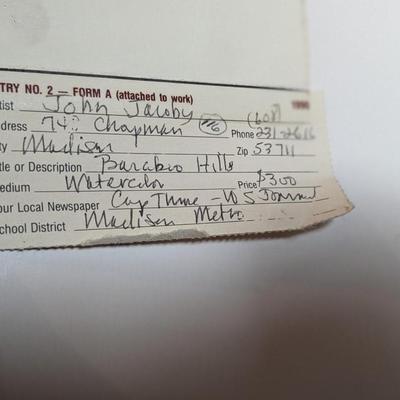 TRY NO. 2 — FORM A (attached to work) 1990
tist John Jacoby (608)
dress 742 Chapman #6 Phone 231-2616
ty Madison Zip 53711
tle or Description Baraboo Hills
edium Watercolor Price $300
our Local Newspaper Cap Times - WS Journal
chool District Madison Metro